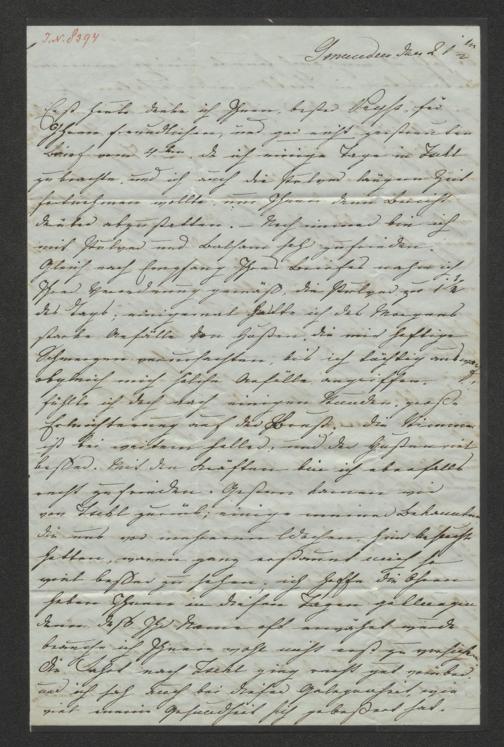 I.N. 8394
Gmunden den 21ten
Erst heute danke ich Ihnen, bester für
Ihren freundlichen, und gar nicht
Brief vom 4ten da ich einige Tage in Ischl
zubrachte, und ich auch die Pulver längere Zeit
fortnehmen wollte um Ihnen dann Bericht
darüber abzustatten. – Noch immer bin ich
mit Pulver und Balsam sehr zufrieden.
Gleich nach Empfang Ihres Briefes nahm ich
Ihrer Verordnung gemäß, die Pulver zu
des Tags; einigemal hatte ich des Morgens
starke Anfälle von Husten, die mir heftige
Schmerzen verursachten, bis ich tüchtig
obgleich mich solche Anfälle angriffen
fühlte ich doch nach einigen Stunden große
Erleichterung auf der Brust. die Stimme
ist bei weitem heller, und der Husten
besser. Mit den Kräften bin ich ebenfalls
recht zufrieden. Gestern kamen wir
von Ischl zurück; einige meiner Bekannten
die uns vor mehreren Wochen hier besucht
hatten, waren ganz erstaunt mich so
viel besser zu sehen, ich hoffe die Ohren
haben Ihnen in diesen Tagen geklungen
denn daß Ihr Name oft erwähnt wurde
brauche ich Ihnen wohl nicht erst zu
Die Fahrt nach Ischl ging recht gut vorüber
und ich sah auch bei dieser Gelegenheit wie
viel meine Gesundheit sich gebessert hat. –